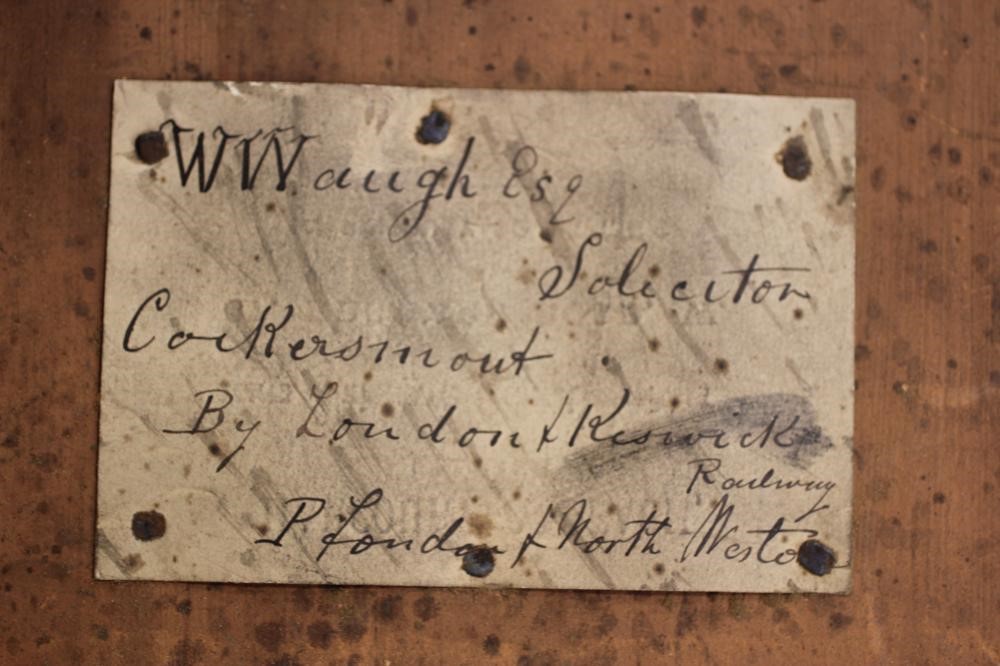 WWaugh Esq
Solicitor
Cockersmout
By London & Keswick
Railway
P London & North Westo